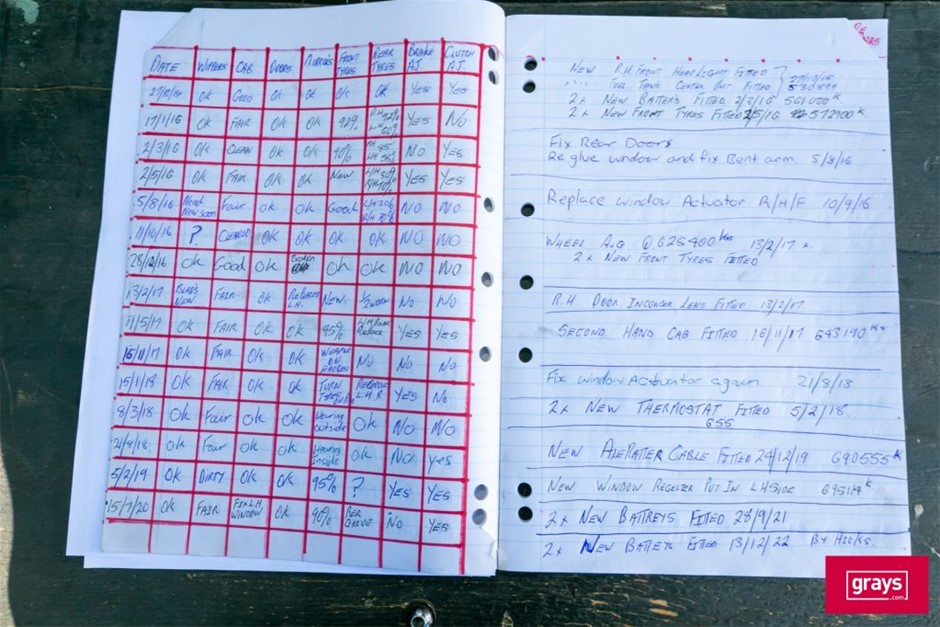 DATE WIPPERS CAB DOORS MIRRORS FRONT TYRES REAR TYRES BRAKE AJ. CLUTCH AJ.
27/10/15 OK GOOD OK OK OK OK YES YES
17/1/16 OK FAIR OK OK 92% R.H 92% L.H 60% YES NO
2/3/16 OK CLEAN OK OK 10% L.H 55% NO YES
2/5/16 OK FAIR OK OK NEW L/H 50% R/H 70% YES YES
5/8/16 Need New soon Fair OK OK Good L/H 50% R/H 30% NO NO
11/10/16 ? CLEANED OK OK OK OK NO NO
28/12/16 OK Good OK Broken OK OK NO NO
13/2/17 BLADS NEW. FAIR OK REPLACED L.H. NEW 1/2 WORN NO NO
11/5/17 OK FAIR OK OK 95% YES YES
16/11/17 OK FAIR OK OK WEARING ON NO NO NO
15/1/18 OK FAIR OK OK TURN TYRES L.H.R YES NO
8/3/18 OK Fair OK OK Wearing outside OK NO NO
21/8/18 OK Fair OK OK Wearing Inside OK NO Yes
5/2/19 OK DIRTY OK OK 95% ? YES YES
15/7/20 OK FAIR FIX L.H. WINDOW OK 90% GROVE NO YES
NEW R.H. FRONT HEADLIGHT FITTED 27/10/15
" " FUEL TANK CENTER FITTED
2x NEW BATTERYS FITTED 2/3/16 561000 K
2x NEW FRONT TYRES FITTED 2/5/16 572900 K
Fix Rear Doors
Re glue window and fix Bent arm 5/8/16
Replace window Actuator R/H/F 10/9/16
WHEEL ALG @ 625400 Kms 13/2/17
2x NEW FRONT TYRES FITTED
R.H DOOR LENS FITTED 13/2/17.
SECOND HAND CAB FITTED 16/11/17 643190 Ks
Fix window Actuator again 21/8/18
2x NEW THERMOSTAT FITTED 5/2/18.
GSS
NEW CABLE FITTED 24/12/19 690555 K
NEW WINDOW PUT IN L.H SIDE
2x NEW BATTREYS FITTED 28/9/21
2x NEW FITTED 13/12/22 BY HICKS.
grays
.com